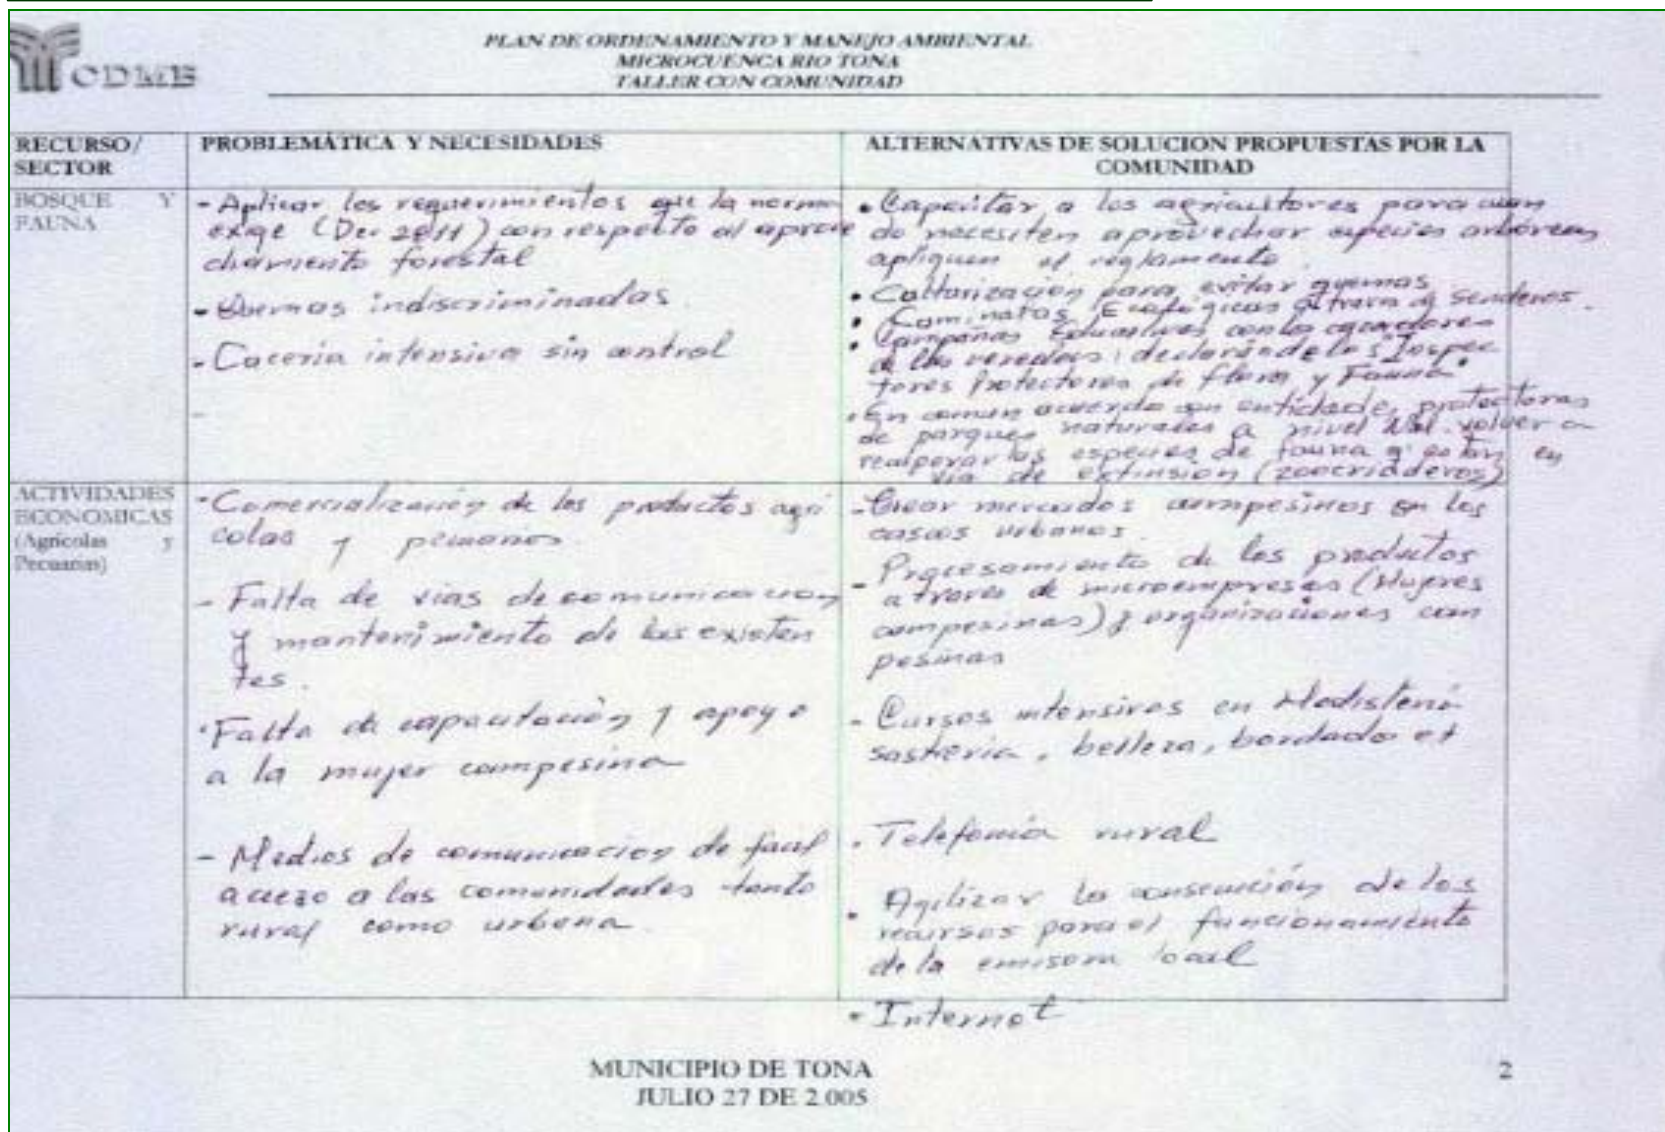 CDMB
PLAN DE ORDENAMIENTO Y MANEJO AMBIENTAL
MICROCUENCA RIO TONA
TALLER CON COMUNIDAD
RECURSO/
SECTOR
PROBLEMÁTICA Y NECESIDADES
ALTERNATIVAS DE SOLUCION PROPUESTAS POR LA
COMUNIDAD
BOSQUE Y
FAUNA
- Aplicar los requerimientos que la norma
exige (Der 2811) con respecto al aprove
chamiento forestal
- Quemas indiscriminadas.
- Caceria intensiva sin control
-
• Capacitar a los agricultores para cuan
do necesiten aprovechar especies arbóreas
apliquen el reglamento.
• Culturización para evitar quemas
• Caminatas Ecológicas a traves de senderos.
• Campañas Educativas con los
de las veredas: declarándolos "Inspec
tores Protectores de flora y Fauna"
• En comun acuerdo con entidades protectoras
de parques naturales a nivel Nal. volver a
recuperar las especies de fauna q' estan en
via de extinsion (zoocriaderos)
ACTIVIDADES
ECONOMICAS
(Agrícolas y
Pecuarias)
- Comercialización de los productos agrí
colas y pecuarios.
- Falta de vias de comunicacion
y mantenimiento de las existen
tes.
• Falta de capacitación y apoyo
a la mujer campesina
- Medios de comunicacion de facil
acceso a las comunidades tanto
rural como urbana.
- Crear mercados campesinos en los
cascos urbanos.
- Procesamiento de los productos
a traves de microempresas (Mujeres
campesinas) y organizaciones cam
pesinas
- Cursos intensivos en Modisteria
sastreria, belleza, bordado et
• Telefonía rural
• Agilizar la consecución de los
recursos para el funcionamiento
de la emisora local
• Internet
MUNICIPIO DE TONA
JULIO 27 DE 2.005
2